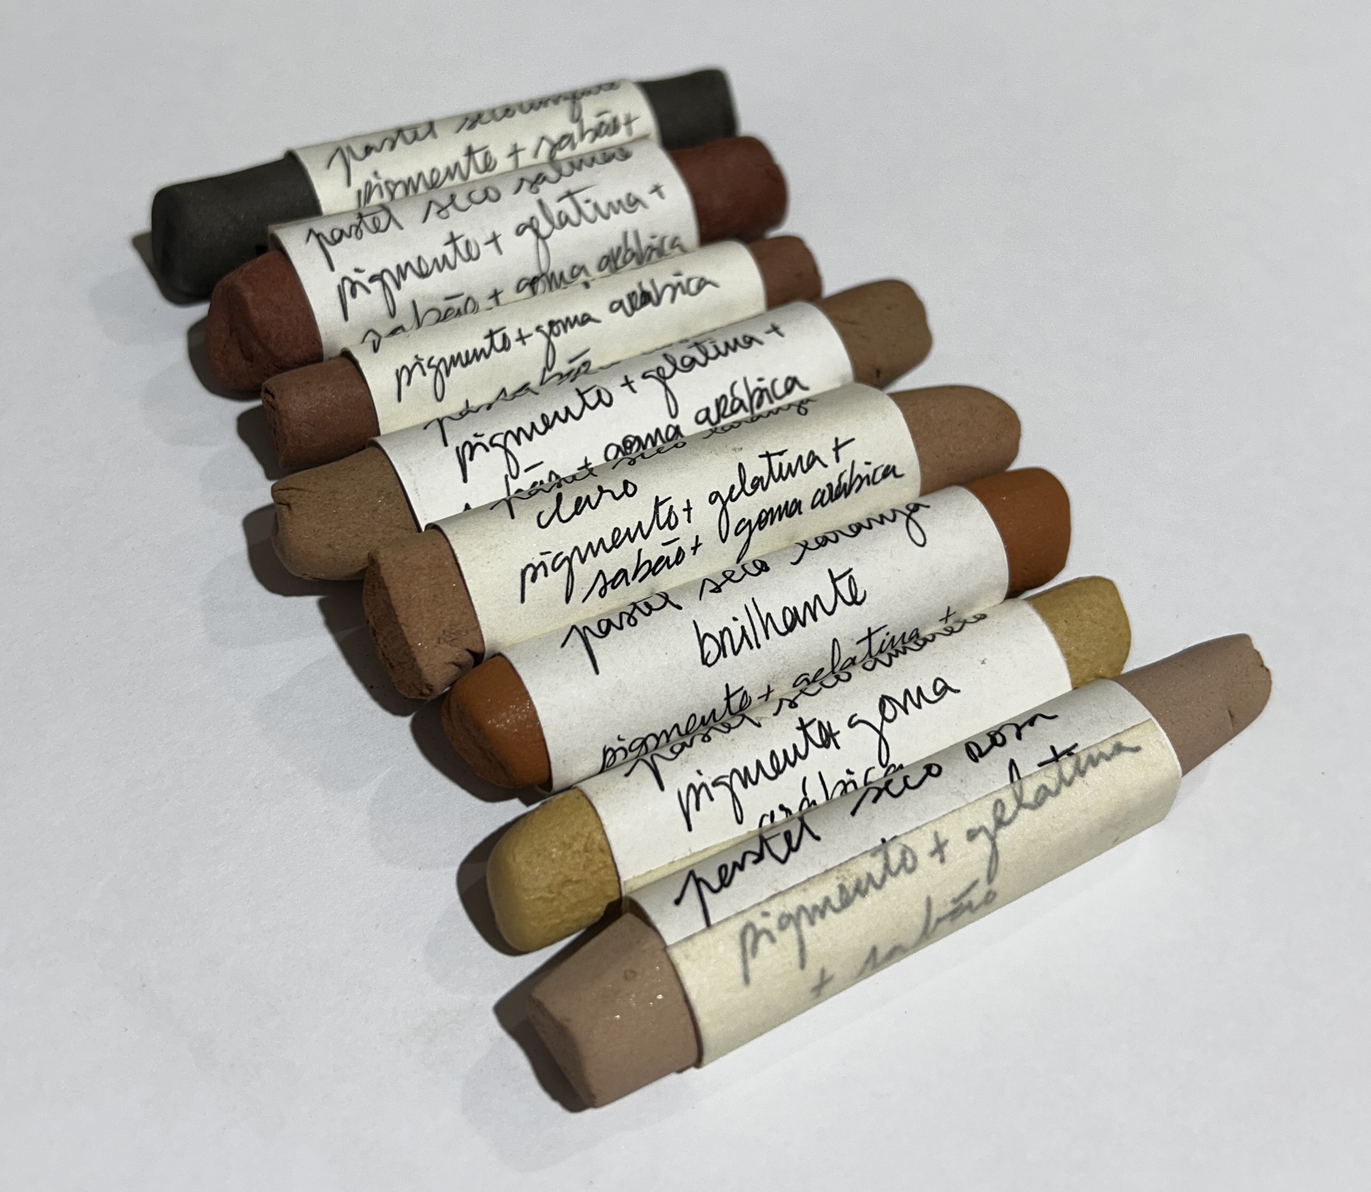 pastel seco
pigmento + sabão +
pastel seco salmão
pigmento + gelatina +
sabão + goma arábica
pigmento + goma arábica
sabão
pigmento + gelatina +
+ goma arábica
pastel seco laranja
claro
pigmento + gelatina +
sabão + goma arábica
pastel seco laranja
brilhante
pigmento + gelatina +
pastel seco amarelo
pigmento + goma
arábica
pastel seco rosa
pigmento + gelatina
+ sabão